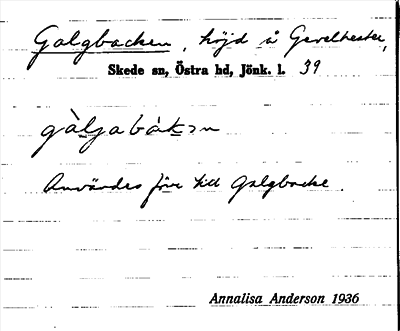 Galgbacken, höjd å Gevelhester,
Skede sn, Östra hd, Jönk. l. 39
gàlgabàkən
Användes förr till Galgbacke.
Annalisa Anderson 1936